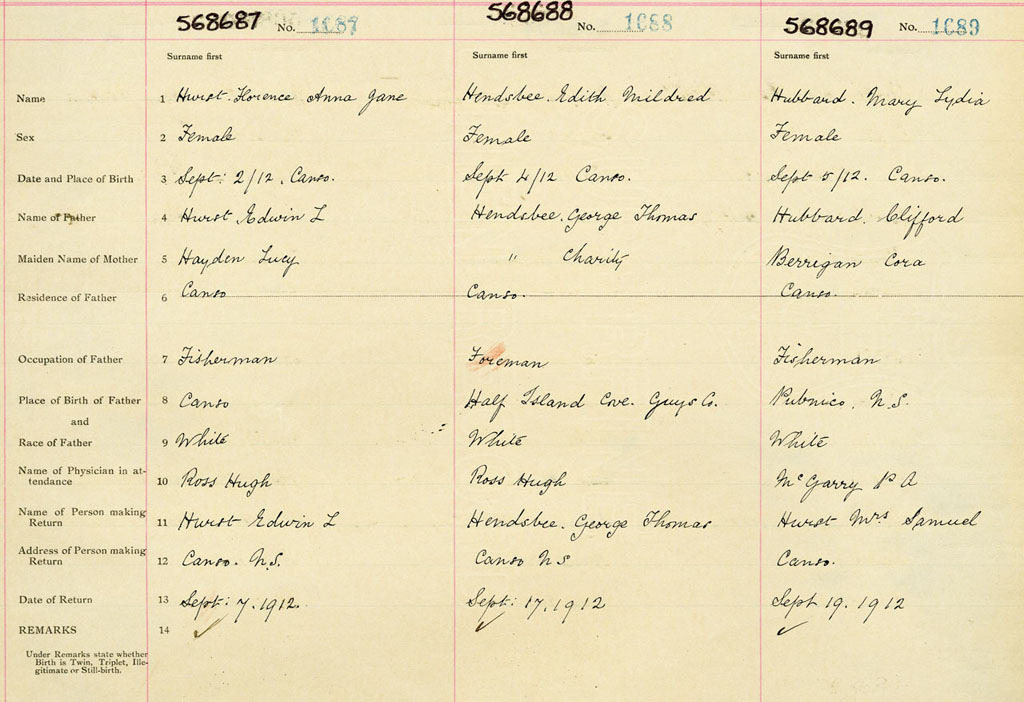 568687 No. 1087 568688 No. 1088 568689 No. 1089
Surname first Surname first Surname first
Name 1 Hurst. Florence Anna Jane Hendsbee. Edith Mildred Hubbard. Mary Lydia
Sex 2 Female Female Female
Date and Place of Birth 3 Sept: 2/12. Canso. Sept 4/12 Canso. Sept 5/12. Canso.
Name of Father 4 Hurst Edwin L Hendsbee. George Thomas Hubbard. Clifford
Maiden Name of Mother 5 Hayden Lucy " Charity Berrigan Cora
Residence of Father 6 Canso Canso. Canso.
Occupation of Father 7 Fisherman Foreman Fisherman
Place of Birth of Father 8 Canso Half Island Cove. Guys Co. Pubnico. N.S.
and
Race of Father 9 White White White
Name of Physician in at-
tendance 10 Ross Hugh Ross Hugh McGarry P A
Name of Person making
Return 11 Hurst Edwin L Hendsbee. George Thomas Hurst Mrs Samuel
Address of Person making
Return 12 Canso. N.S. Canso N S Canso.
Date of Return 13 Sept: 7. 1912. Sept: 17. 1912 Sept 19. 1912
REMARKS 14 ✓ ✓ ✓
Under Remarks state whether
Birth is Twin, Triplet, Ille-
gitimate or Still-birth.